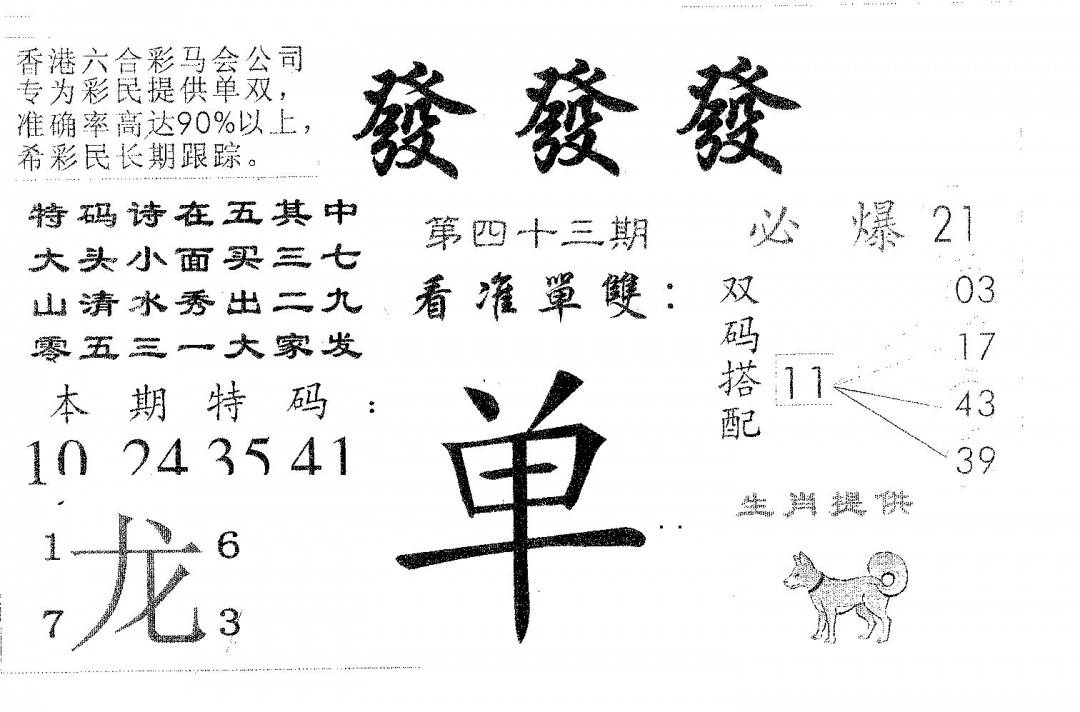 香港六合彩马会公司
专为彩民提供单双，
准确率高达90%以上，
希彩民长期跟踪。
發 發 發
特码诗在五其中
大头小面买三七
山清水秀出二九
零五三一大家发
第四十三期
看准單雙：
单
必爆21
双码搭配
11
03
17
43
39
本期特码：
10 24 35 41
龙
1 6
7 3
生肖提供